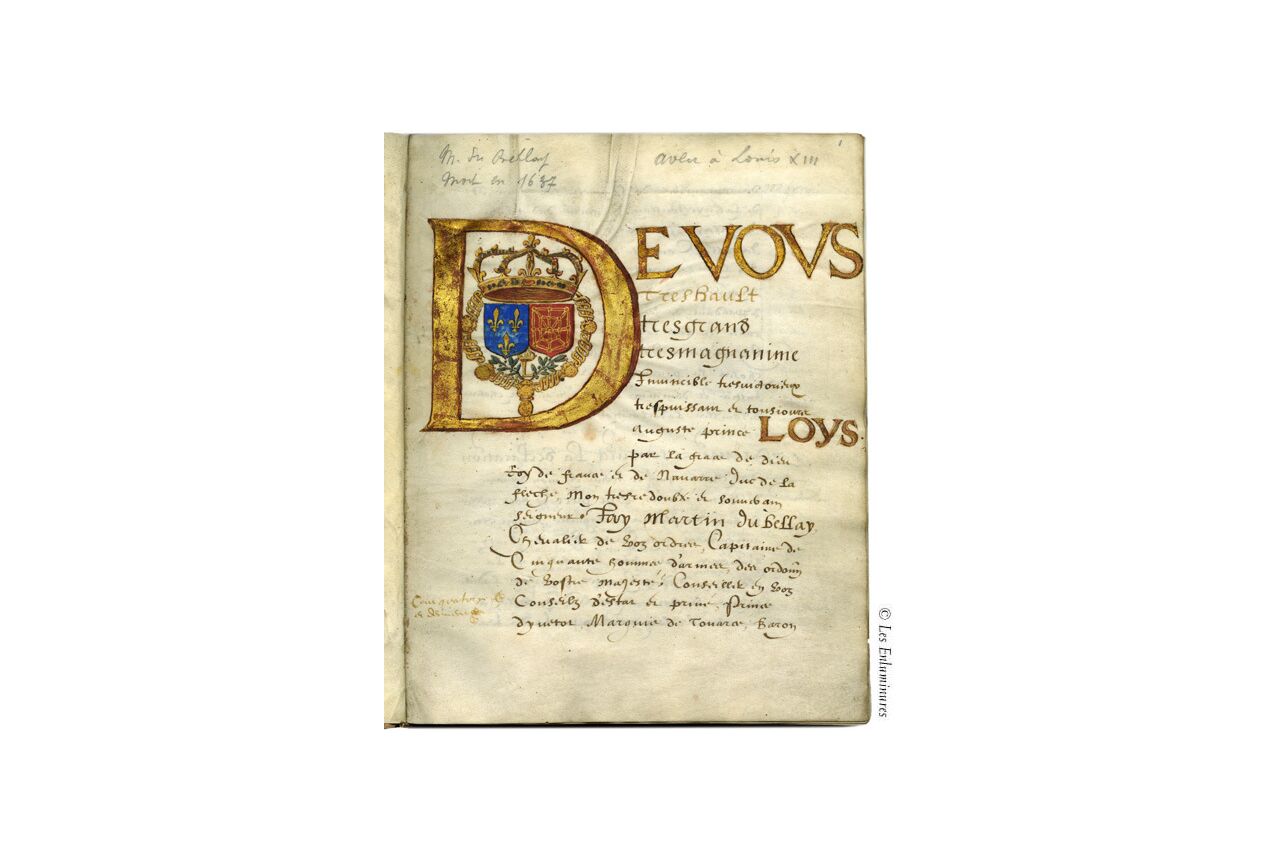 M. du Bellay
Mort en 1637
aveu à Louis XIII
1
DE VOVS
treshault
tresgrand
tresmagnanime
Invincible tresvictorieux
trespuissant et tousiours
auguste prince LOYS
par la grace de dieu
Roy de france et de Navarre Duc de la
fleche, Mon tresredoubte et souverain
seigneur, Iay Martin du bellay,
Chevalier de voz ordres, Capitaine de
Cinquante hommes d'armes, des ordonn
de vostre majeste, Conseiller en voz
Conseilz d'estat et prive, Prince
dyvetot, Marquis de Touarce, Baron
© Les Enluminures